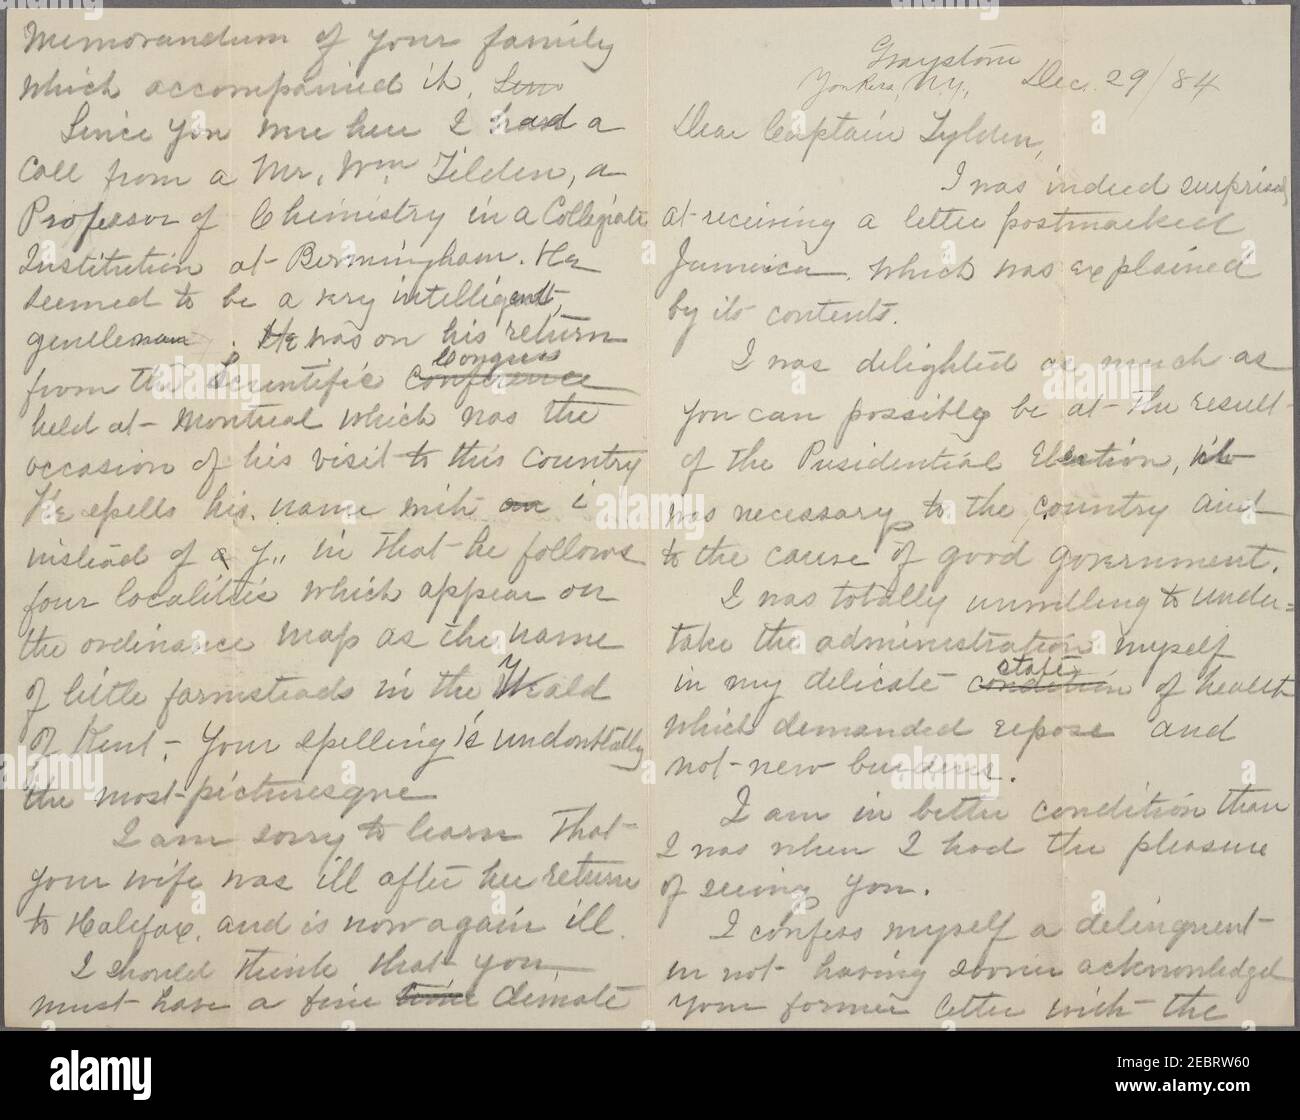 Graystone
Yonkers, N.Y., Dec. 29/84
Dear Captain Tylden,
I was indeed surprised
at receiving a letter postmarked
Jamaica, which was explained
by its contents.
I was delighted as much as
you can possibly be at the result
of the Presidential Election, it
was necessary to the country and
to the cause of good government.
I was totally unwilling to under=
take the administration myself
in my delicate condition state of health
which demanded repose and
not new burdens.
I am in better condition than
I was when I had the pleasure
of seeing you.
I confess myself a delinquent
in not having sooner acknowledged
your former letter with the
Memorandum of your family
which accompanied it.
Since you were here I had a
call from a Mr. Wm. Tilden, a
Professor of Chemistry in a Collegiate
Institution at Bermingham. He
seemed to be a very intelligent,
gentleman. He was on his return
from the Scientific conference Congress
held at Montreal which was the
occasion of his visit to this country
He spells his name with an i
instead of a y,, in that he follows
four localities which appear on
the ordinance map as the name
of little farmsteads in the Weald
of Kent - Your spelling is undoubtedly
the most picturesque
I am sorry to learn that
your wife was ill after her return
to Halifax, and is now again ill.
I should think that you
must have a fine time climate
alamy
Image ID: 2EBRW60
www.alamy.com